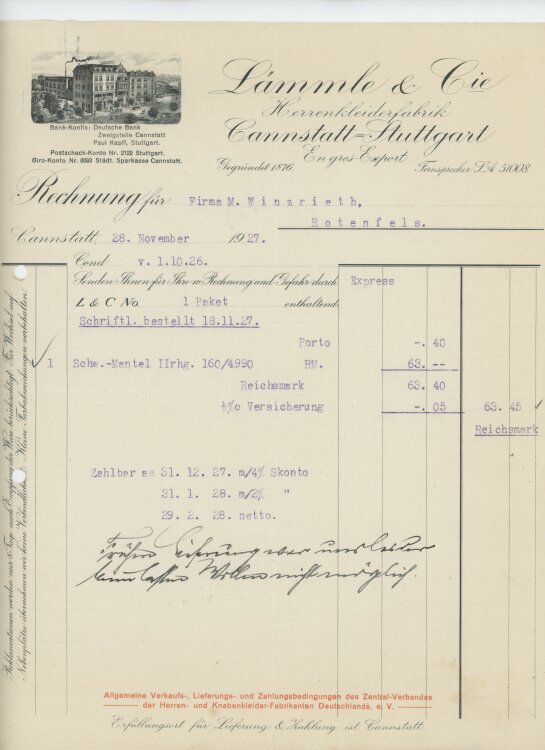 Lämmle & Cie
Herrenkleiderfabrik
Cannstatt-Stuttgart
En gros-Export
Gegründet 1876.
Fernsprecher S.A. 51008.
Bank-Kontis: Deutsche Bank
Zweigstelle Cannstatt
Paul Kapff, Stuttgart.
Postscheck-Konto Nr. 2122 Stuttgart.
Giro-Konto Nr. 8093 Städt. Sparkasse Cannstatt.
Rechnung für Firma M. Winzrieth,
Rotenfels.
Cannstatt, 28. November 1927.
Cond v. 1.10.26.
Senden Ihnen für Ihre w. Rechnung und Gefahr durch Express
L & C No. 1 Paket enthaltend
Schriftl. bestellt 18.11.27.
Porto -. 40
1 Schw.-Mantel IIrhg. 160/4990 RM. 63. --
Reichsmark 63. 40
½%o Versicherung -. 05 63. 45
Reichsmark
Zahlbar am 31. 12. 27. m/4% Skonto
31. 1. 28. m/2% "
29. 2. 28. netto.
Frühere Lieferung war uns leider
beim besten Willen nicht möglich.
Reklamationen werden nur 8 Tage nach Empfang der Ware berücksichtigt. Für Wechsel auf
Nebenplätze übernehmen wir keine Verbindlichkeit. Kleine Farbabweichungen vorbehalten.
Allgemeine Verkaufs-, Lieferungs- und Zahlungsbedingungen des Zentral-Verbandes
der Herren- und Knabenkleider-Fabrikanten Deutschlands, e. V.
Erfüllungsort für Lieferung & Zahlung ist Cannstatt